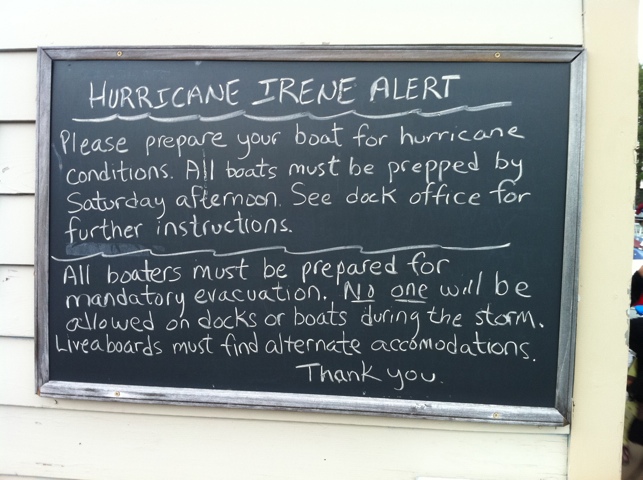 HURRICANE IRENE ALERT
Please prepare your boat for hurricane
conditions. All boats must be prepped by
Saturday afternoon. See dock office for
further instructions.
All boaters must be prepared for
mandatory evacuation. No one will be
allowed on docks or boats during the storm.
Liveaboards must find alternate accomodations.
Thank you.